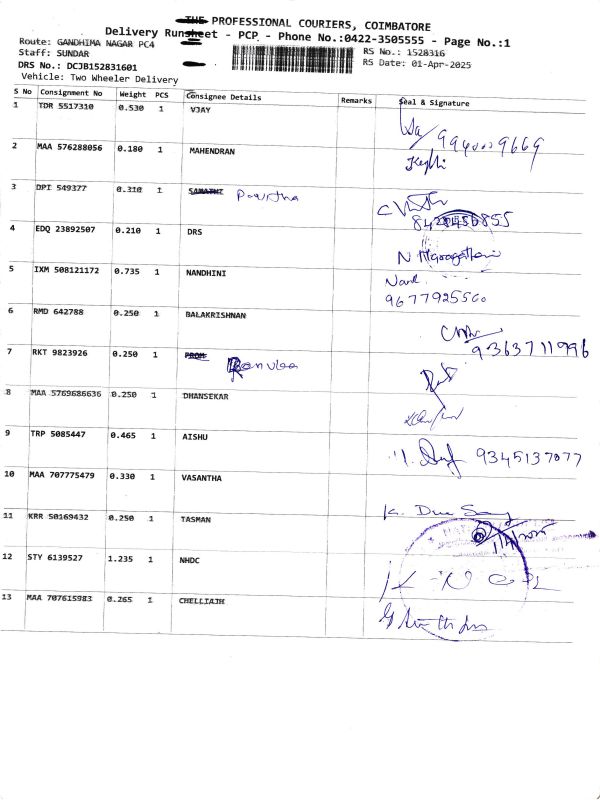 THE PROFESSIONAL COURIERS, COIMBATORE
Delivery Runsheet - PCP - Phone No.:0422-3505555 - Page No.:1
Route: GANDHIMA NAGAR PC4
RS No.: 1528316
Staff: SUNDAR
RS Date: 01-Apr-2025
DRS No.: DCJB152831601
Vehicle: Two Wheeler Delivery
S No Consignment No Weight PCS Consignee Details Remarks Seal & Signature
1 TDR 5517310 0.530 1 VJAY
2 MAA 576288056 0.180 1 MAHENDRAN
3 DPI 549377 0.310 1
4 EDQ 23892507 0.210 1 DRS
5 IXM 508121172 0.735 1 NANDHINI
9677925560
6 RMD 642788 0.250 1 BALAKRISHNAN
9363711996
7 RKT 9823926 0.250 1
8 MAA 5769686636 0.250 1 DHANSEKAR
9 TRP 5085447 0.465 1 AISHU
9345137077
10 MAA 707775479 0.330 1 VASANTHA
11 KRR 50169432 0.250 1 TASMAN
12 STY 6139527 1.235 1 NHDC
13 MAA 707615983 0.265 1 CHELLIAJH